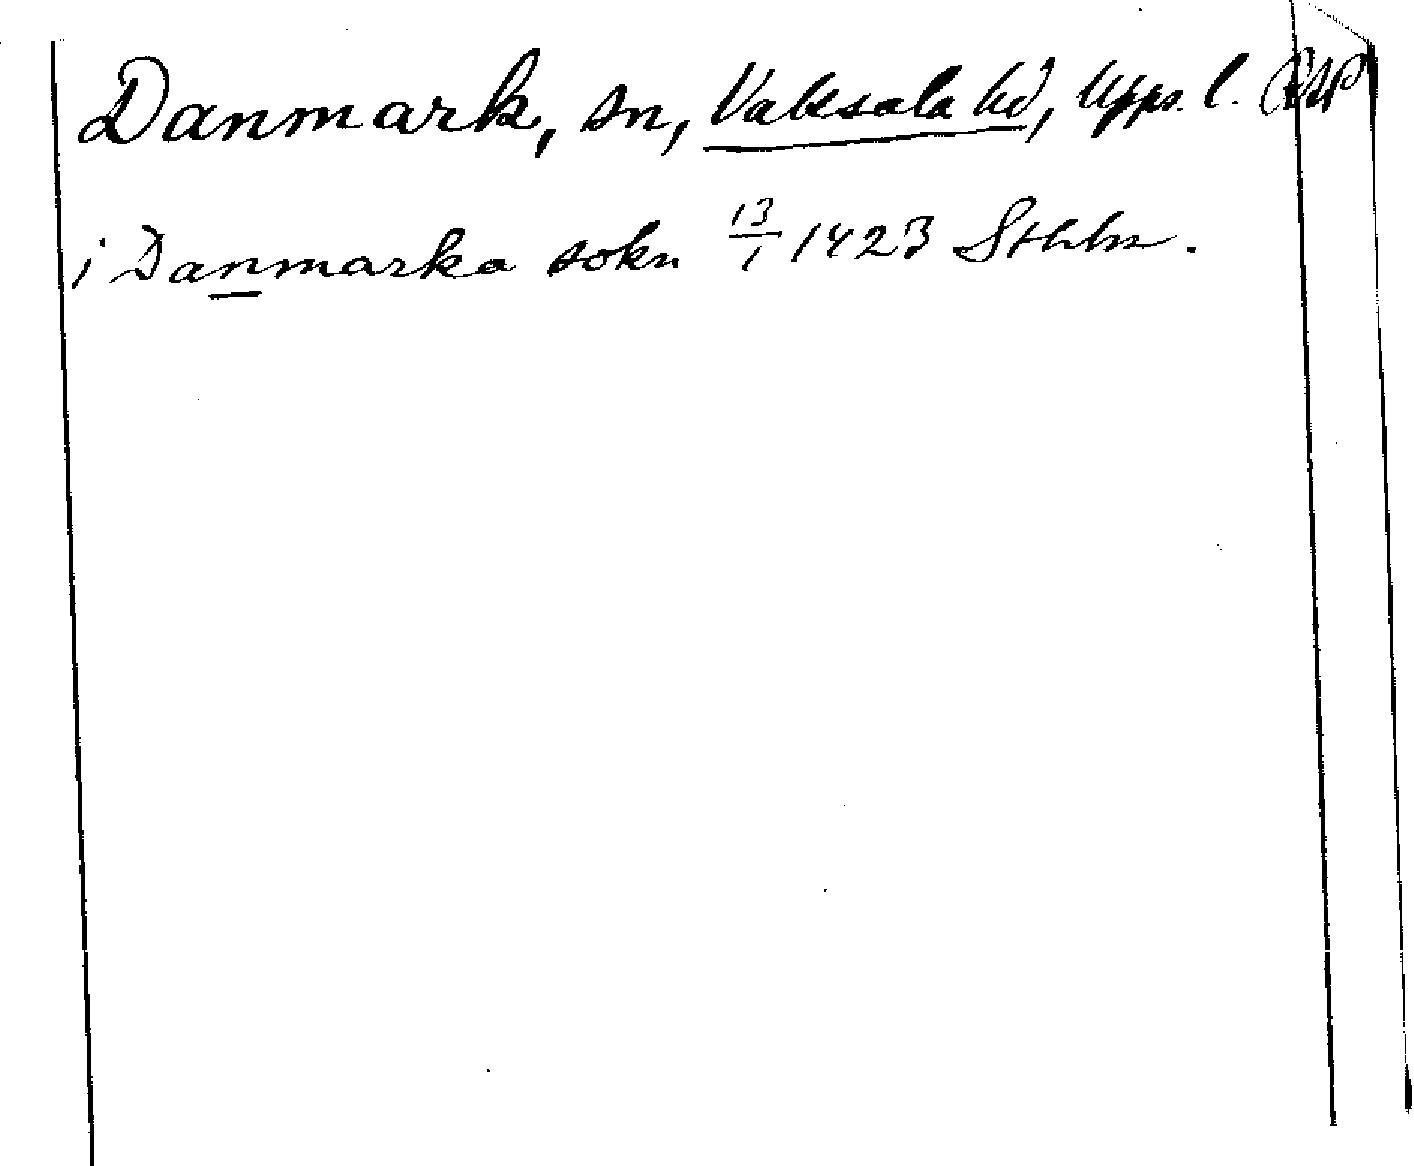 Danmark, sn, Vaksala hd, Upps. l.
i Danmarka sokn 13/1 1423 Sthlm.